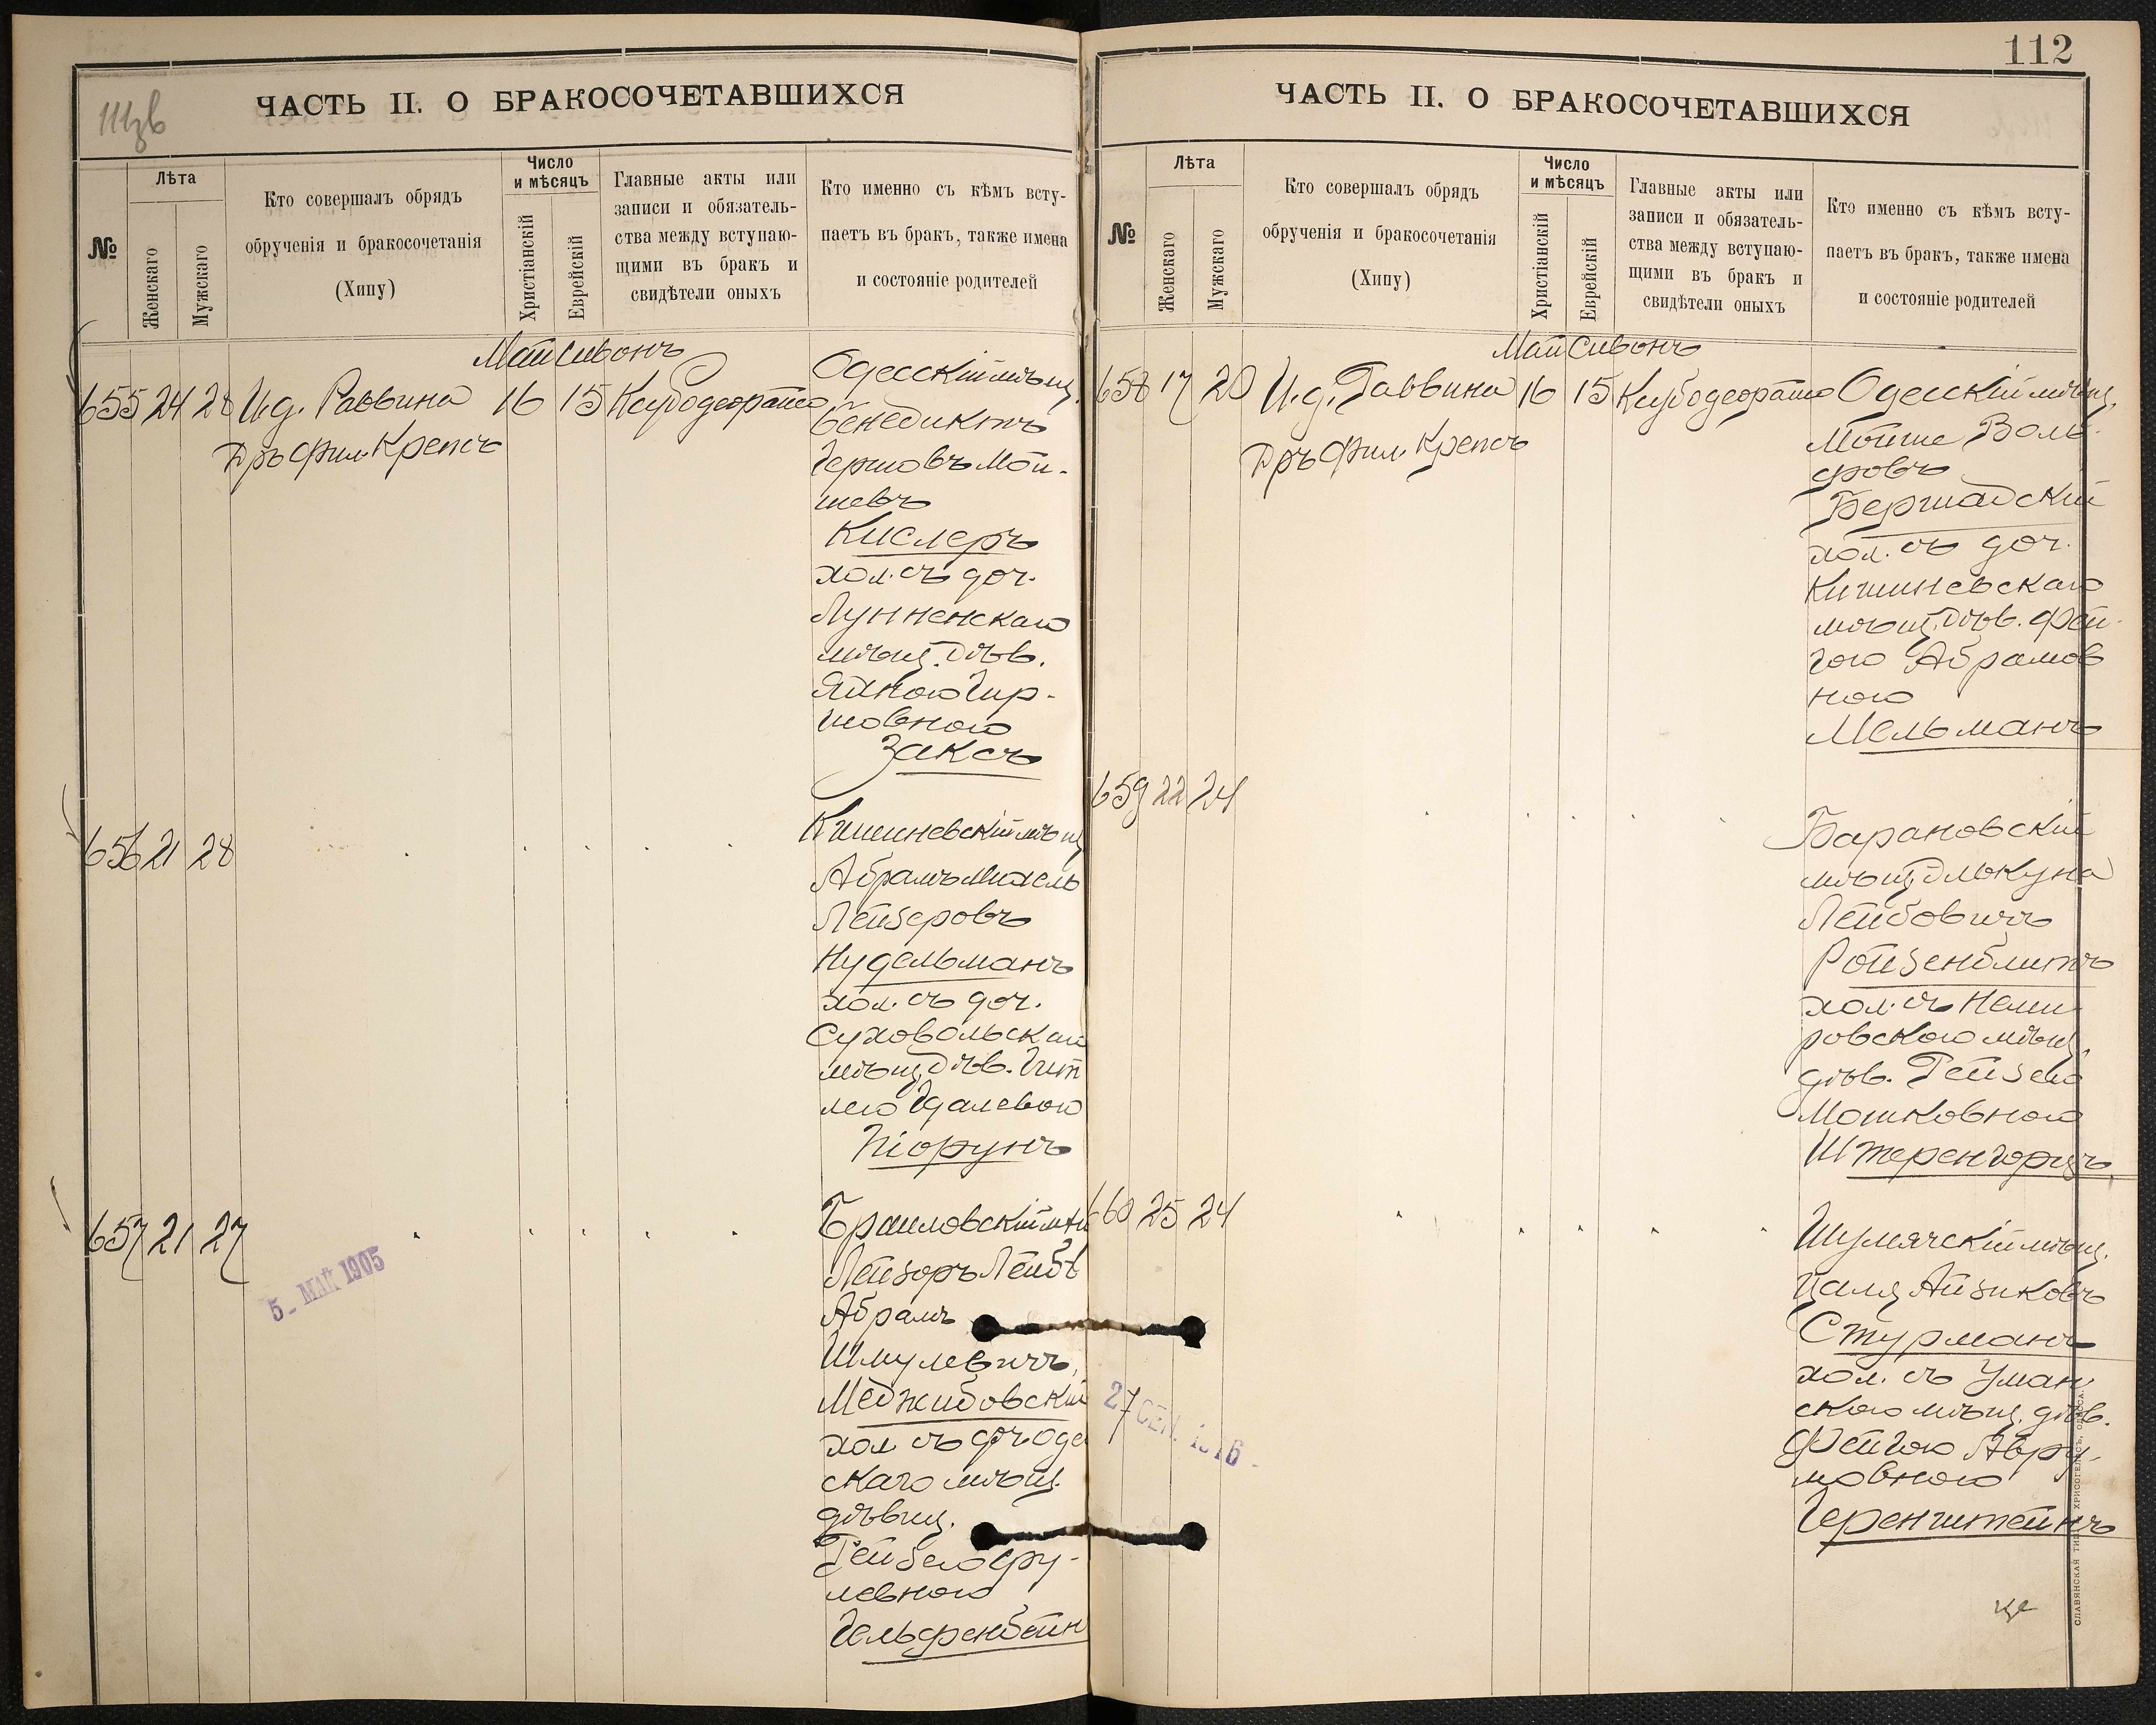 111зв
ЧАСТЬ II. О БРАКОСОЧЕТАВШИХСЯ
№
Лѣта
Женскаго
Мужскаго
Кто совершалъ обрядъ
обрученія и бракосочетанія
(Хипу)
Число
и мѣсяцъ
Христіанскій
Еврейскій
Главные акты или
записи и обязатель-
ства между вступаю-
щими въ бракъ и
свидѣтели оныхъ
Кто именно съ кѣмъ всту-
паетъ въ бракъ, также имена
и состояніе родителей
Май Сивонъ
655 24 28 И.д. Раввина 16 15 Ксубодеорайто Одесскій мѣщ.
Дръ Фил. Крепсъ
Бенедиктъ
Гершовъ Мой-
шевъ
Кислеръ
хол. съ доч.
Лунненскаго
мѣщ. дѣв.
Яхною Гир-
шовною
Заксъ
656 21 28
Кишиневскій мѣщ
Абрамъ Михель
Лейзеровъ
Нудельманъ
хол. съ доч.
Суховольскаго
мѣщ. дѣв. Гит
лею Гдалевою
Піорунъ
657 21 27
Браиловскій мѣщ
Лейзоръ Лейбъ
Абрамъ
Шмулевичъ
Меджибовскій
хол съ доч Оде
скаго мѣщ.
дѣвиц.
Рейзею Сру-
левною
Гельфенбейн
5 - МАЙ 1905
112
ЧАСТЬ II. О БРАКОСОЧЕТАВШИХСЯ
№
Лѣта
Женскаго
Мужскаго
Кто совершалъ обрядъ
обрученія и бракосочетанія
(Хипу)
Число
и мѣсяцъ
Христіанскій
Еврейскій
Главные акты или
записи и обязатель-
ства между вступаю-
щими въ бракъ и
свидѣтели оныхъ
Кто именно съ кѣмъ всту-
паетъ въ бракъ, также имена
и состояніе родителей
Май Сивонъ
658 17 20 И.д. Раввина 16 15 Ксубодеорайто Одесскій мѣщ.
Дръ Фил. Крепсъ
Мойше Воль-
фовъ
Бершадскій
хол. съ доч.
Кишиневскаго
мѣщ. дѣв. Фей-
гою Абрамов
ною
Мельманъ
659 22 24
Барановскій
мѣщ. Элькуна
Лейбовичъ
Ройзенблитъ
хол. съ Неми
ровскою мѣщ.
дѣв. Рейзею
Мошковною
Штеренгорцъ
660 25 24
Шумячскій мѣщ.
Цаля Айзиковъ
Стурманъ
хол. съ Уман
скою мѣщ. дѣв.
Фейгою Авру-
мовною
Геренштейнъ
27 СЕН.
СЛАВЯНСКАЯ ТИП. ХРИСОГЕЛОСЪ, ОДЕССА.